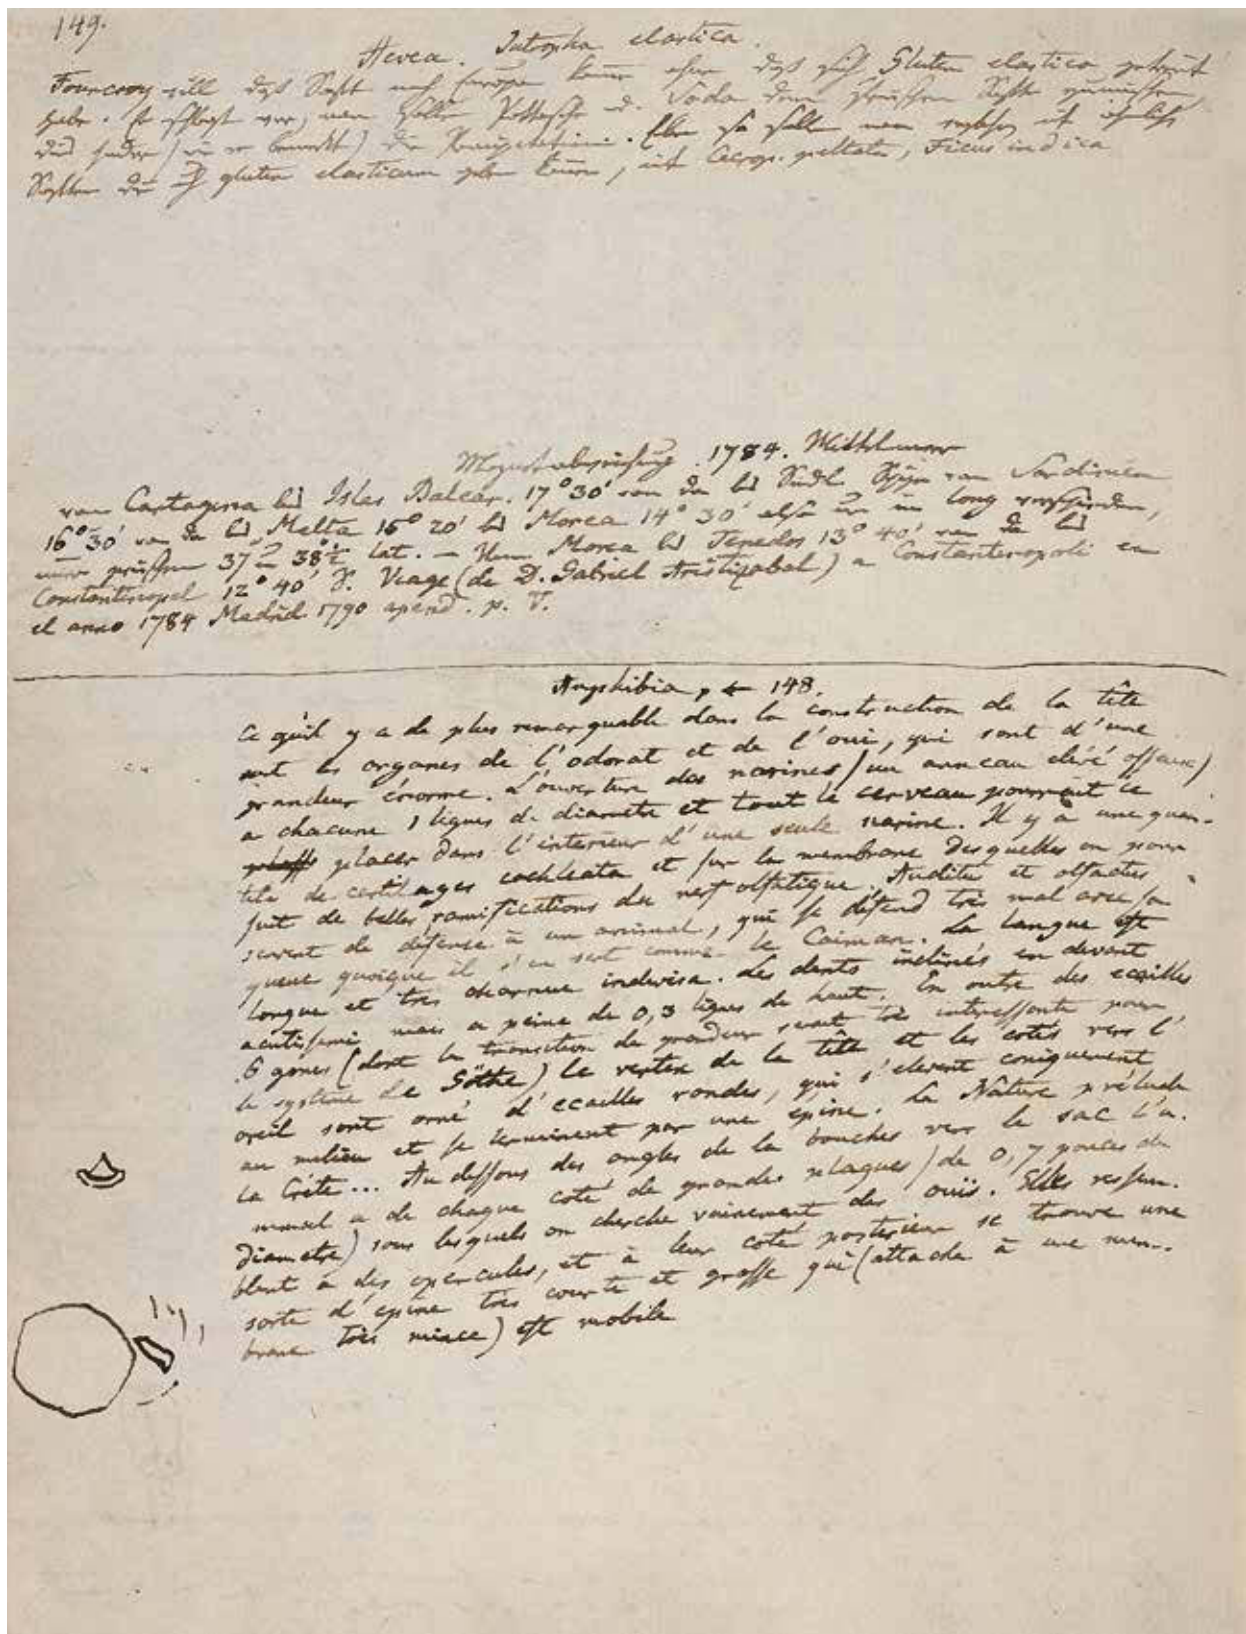 149.
Hevea. Jatropha elastica.
Fourcroy will daß Saft nach Europa komme ohne daß sich Gluten elastica getrennt
habe. Er schlägt vor, man solle Pottasche od. Soda dem frischen Safte zumischen,
dies hindre (wie er bemerkt) die Precipitation. Eben so solle man
Säften die gluten elasticum geben können, mit Cecrop. peltata, Ficus indica
Magnetabweichung 1784. Mittelmeer
von Cartagena bis Islas Balear. 17° 30′ von da bis Südl. Spize von Sardinien
16° 30′ von da bis Malta 15° 20′ bis Morea 14° 30′ also nur in long verschieden,
immer zwischen 37 u 38½ lat. – Von Morea bis Tenedos 13° 40′ von da bis
Constantinopel 12° 40′ S. Viage (de D. Gabriel Aristizabal) a Constantinopoli en
el anno 1784 Madrid 1790 apend. p. V.
Amphibia, p ← 148.
Ce qu'il y a de plus remarquable dans la construction de la tête
sont les organes de l'odorat et de l'oui, qui sont d'une
grandeur énorme. L'ouverture des narines (un anneau elévé osseux)
a chacune lignes de diametre et tout le cerveau pourrait ce
placer dans l'interieur d'une seule narine. Il y a une quan-
tité de cartilages cochleata et sur la membrane desquelles on pour
suit de belles ramifications du nerf olfatique. Auditus et olfactus
servent de défense à un animal, qui se défend très mal avec sa
queue quoique il s'en sert comme le Caiman. La langue est
longue et très charnue indivisa. Les dents inclinés en devant
acutissimi mais a peine de 0,3 lignes de haut. En outre des ecailles
6 gones (dont la transition de grandeur serait très interessante pour
le système de Göthe) le vertex de la tête et les cotés vers l'
oreil sont orné d'ecailles rondes, qui s'elevent coniquement
au milieu et se terminent par une epine. La Nature prélude
la Crête... Au dessous des angles de la bouches vers le sac l'a.
nimal a de chaque coté de grandes plaques (de 0,7 pouces de
diametre) sous lesquels on cherche vainement des ouïs. Elles ressem.
blent à des opercules, et à leur coté posterieur se trouve une
sorte d'epine très courte et grosse qui (attaché à une mem-
brane très mince) est mobile